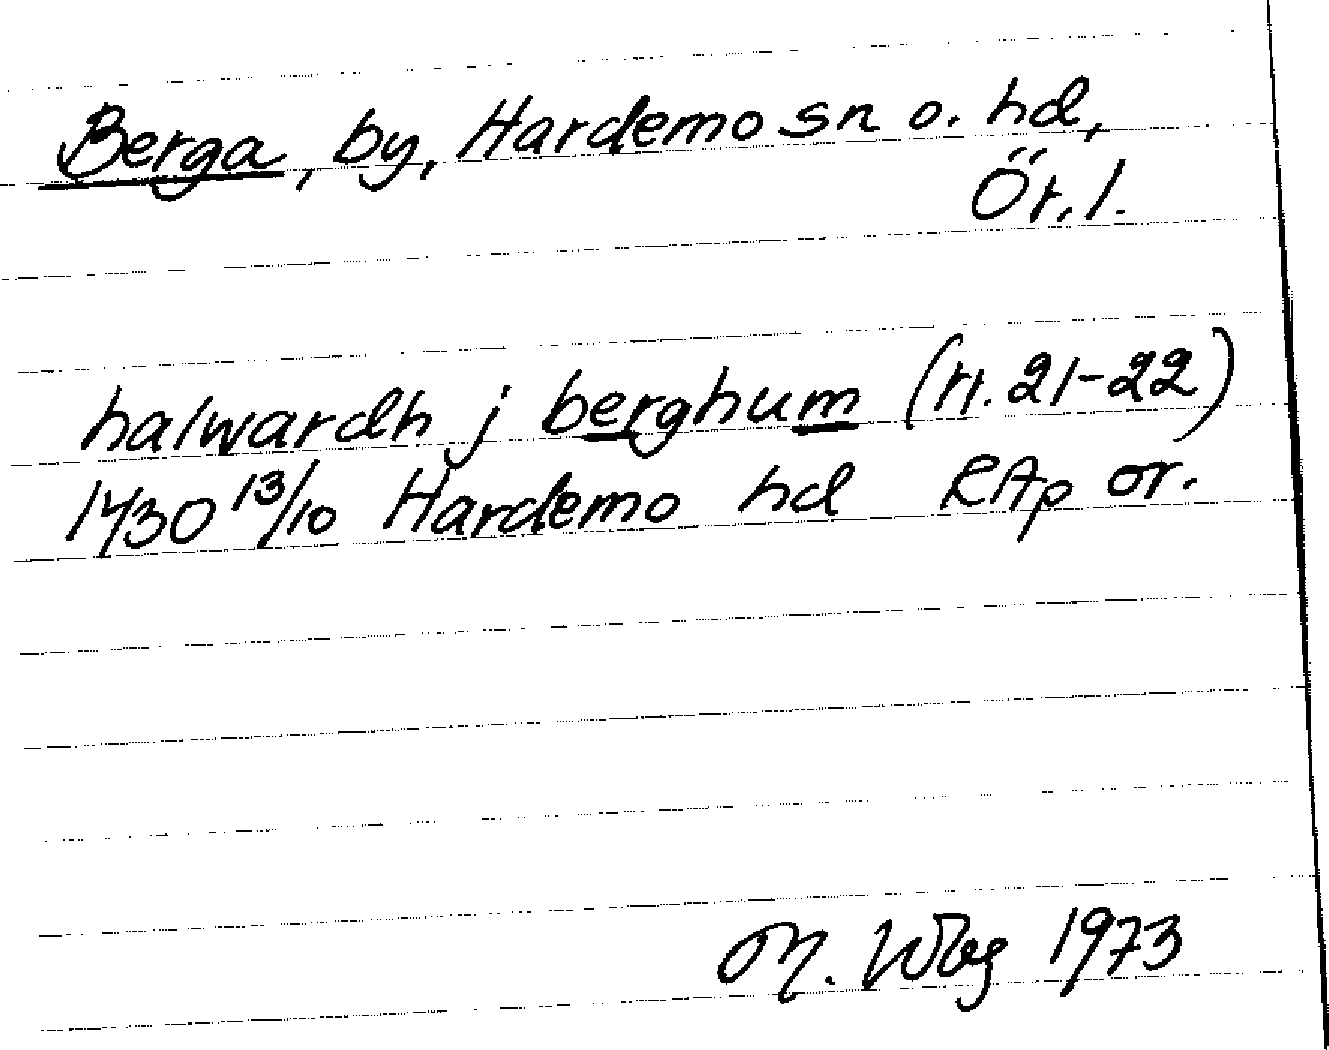 Berga, by, Hardemo sn o. hd,
Ör. l.
halwardh j berghum (r. 21-22)
1430 13/10 Hardemo hd RAp or.
M. Wbg 1973